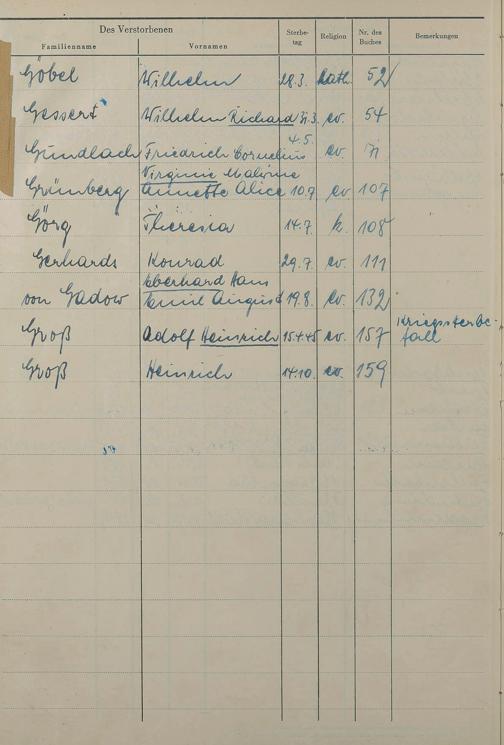 Des Verstorbenen
Familienname Vornamen Sterbe-tag Religion Nr. des Buches Bemerkungen
Göbel Wilhelm 28.3. kath. 52
Gessert Wilhelm Richard 31.3. ev. 54
Gundlach Friedrich Cornelius 4.5. ev. 71
Grünberg Virginie Malvine Annette Alice 10.7 ev 107
Görg Theresia 14.7. k. 108
Gerhards Konrad 29.7. ev. 111
von Gadow Eberhard Hans Emil August 19.8. ev. 132
Groß Adolf Heinrich 15.4.45 ev. 157 Kriegssterbe-fall
Groß Heinrich 14.10. ev. 159